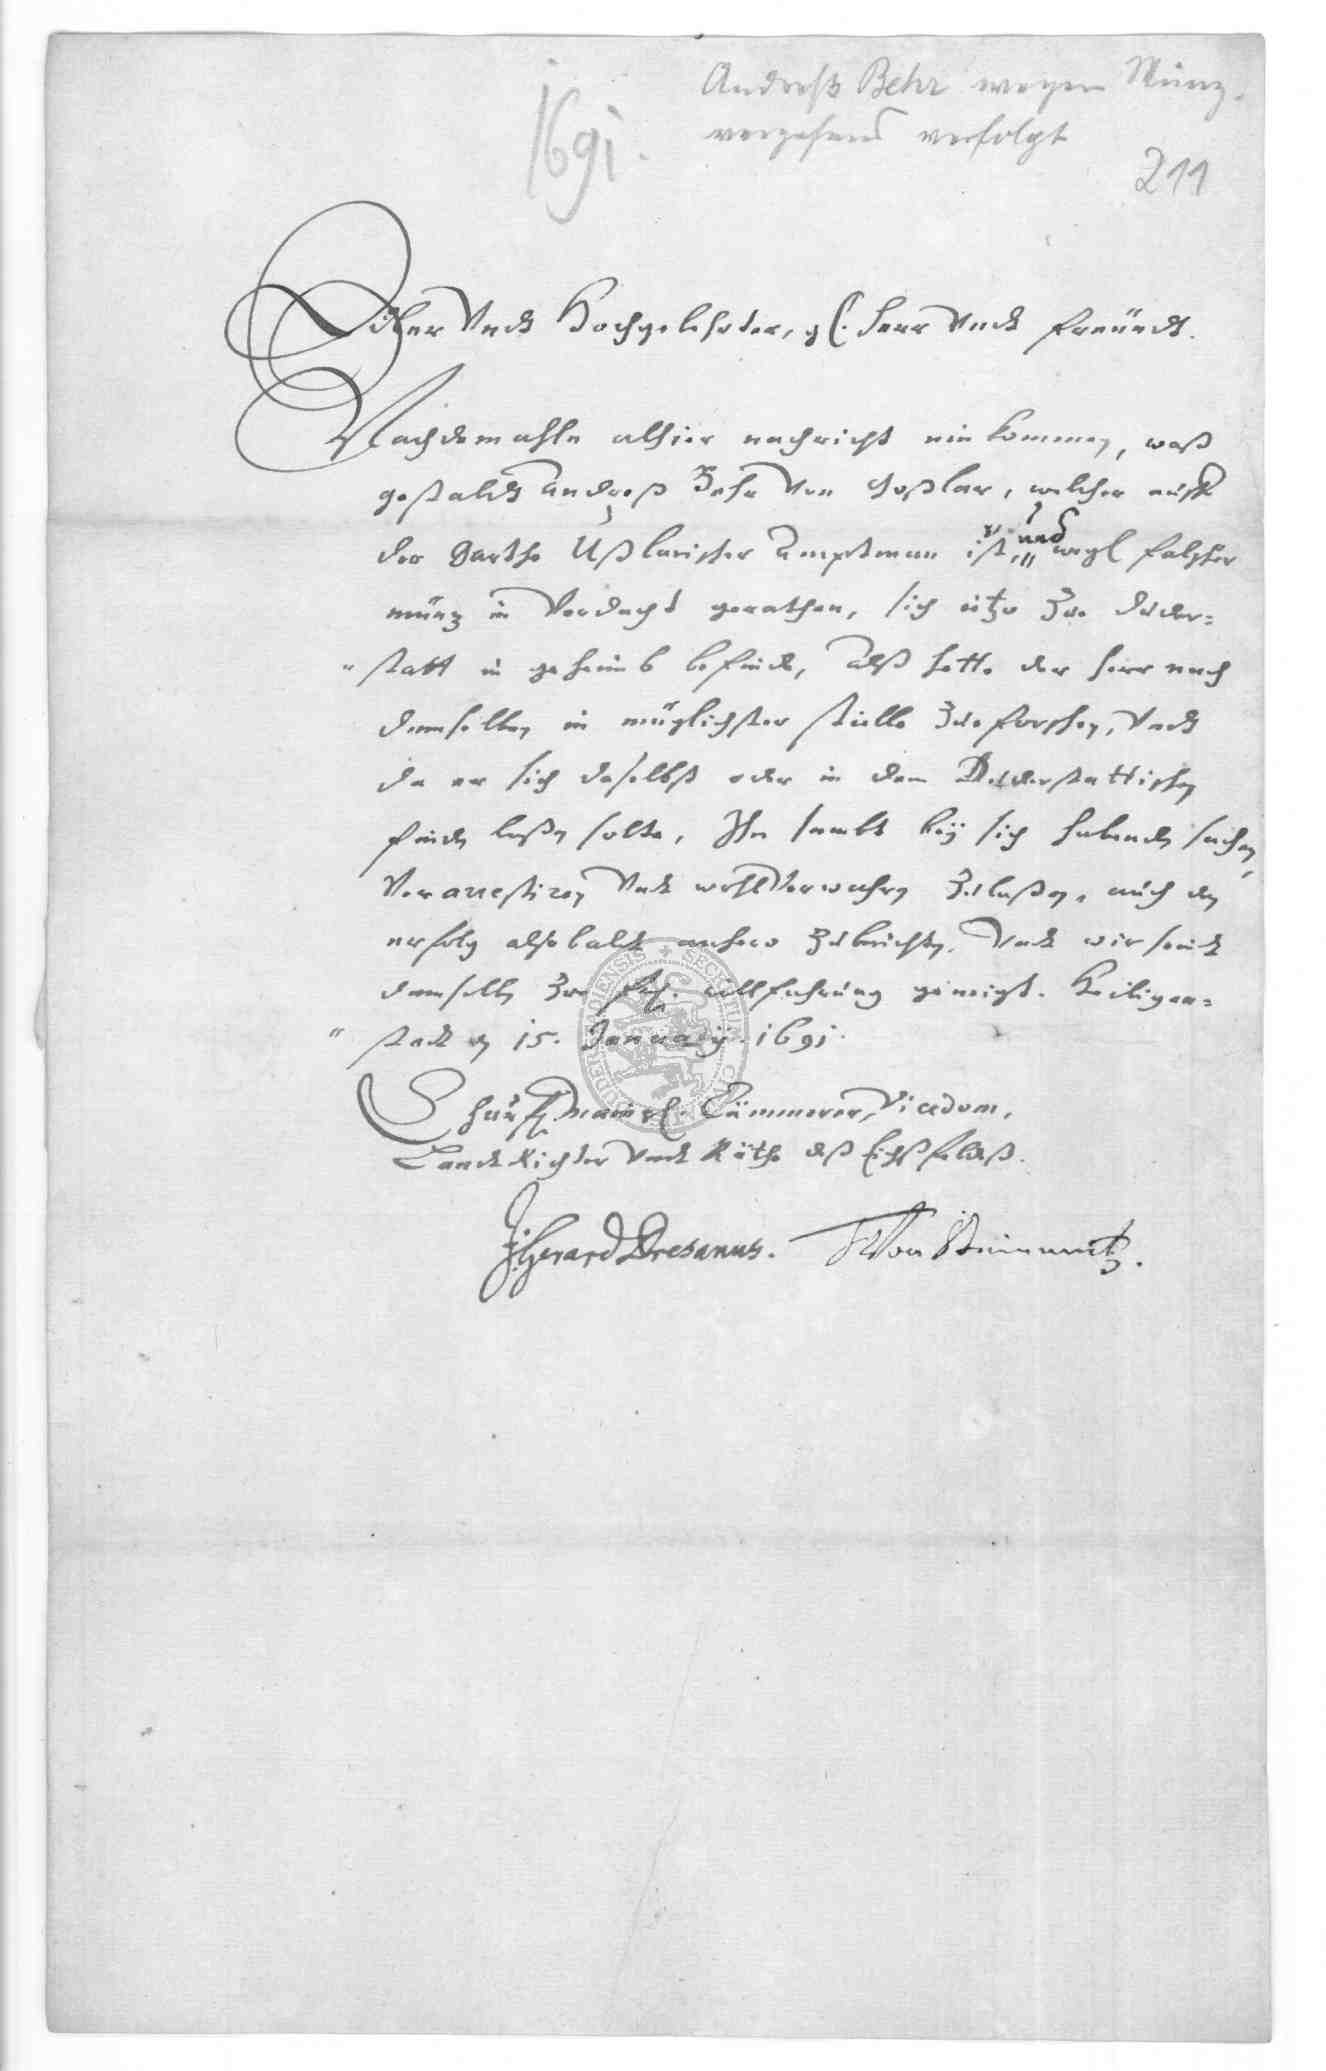 Andreß Behr wegen Münz-
vergehens verfolgt
1691.
211
Edler Undt Hochgelehrter, gl. Herr Undt Freündt.
Nachdemahln alhier nachricht ein kommen, waß
gestaldt Andreß Behr Von Goßlar, welcher
der Ambtman ist, und wegl falscher
müntz in Verdacht gerathen, sich itzo Zue Duder=
"statt in geheimb befinde, Alß hette der Herr nach
demselben in müglichster stille Zue forschen, Undt
da er sich daselbst oder in dem Duderstattischen
finden laßen solte, Ihn sambt beÿ sich habenden sachen,
Verarrestiren Undt wohl Verwahren Zulaßen, auch den
erfolg alsobaldt anhero Zuberichten, Undt wir seindt
demselben Zue willfahrung geneigt. Heiligen=
"stadt den 15. Januarÿ 1691.
Churf. Maintzl. Cämmerer, Vicedom,
Landt Richter Undt Räthe deß Eichßfeldtß.
J. Gerard Dresanus. Von
SECRETUM DUDERSTADIENSIS